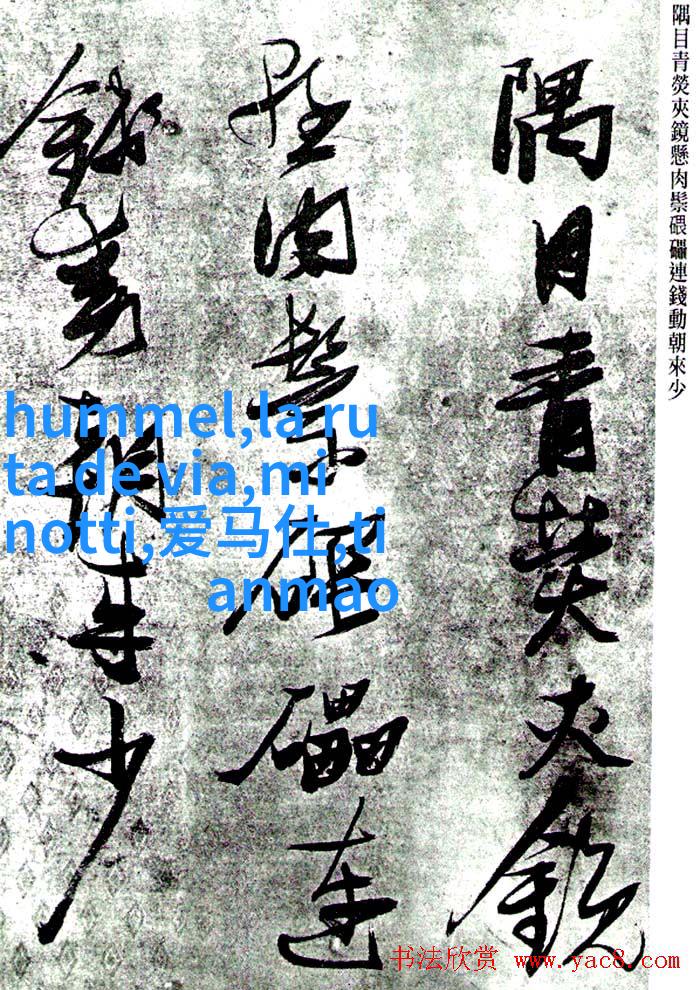 隅目青熒夾鏡懸肉鬃碨礧連錢動朝來少
隅目青熒夾鏡
懸肉鬃碨礧連
錢動朝來少
hummel,la ru
ta de via,mi
notti,爱马仕,ti
anmao
书法欣赏 www.yac8.com